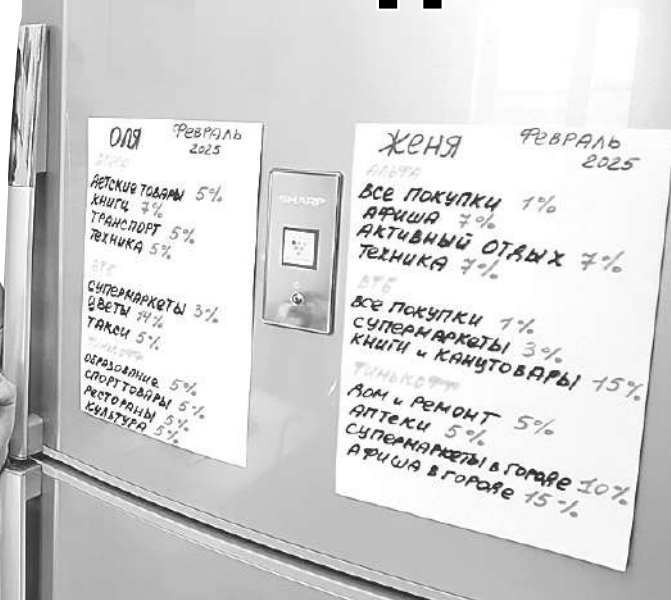 ОЛЯ ФЕВРАЛЬ
2025
ДЕТСКИЕ ТОВАРЫ 5%
КНИГИ 7%
ТРАНСПОРТ 5%
ТЕХНИКА 5%
ВТБ
СУПЕРМАРКЕТЫ 3%
ЦВЕТЫ 14%
ТАКСИ 5%
ТИНЬКОФФ
ОБРАЗОВАНИЕ 5%
СПОРТТОВАРЫ 5%
РЕСТОРАНЫ 5%
КУЛЬТУРА 5%
SHARP
ЖЕНЯ ФЕВРАЛЬ
2025
АЛЬФА
ВСЕ ПОКУПКИ 1%
АФИША 7%
АКТИВНЫЙ ОТДЫХ 7%
ТЕХНИКА 7%
ВТБ
ВСЕ ПОКУПКИ 1%
СУПЕРМАРКЕТЫ 3%
КНИГИ И КАНЦТОВАРЫ 15%
ТИНЬКОФФ
ДОМ И РЕМОНТ 5%
АПТЕКИ 5%
СУПЕРМАРКЕТЫ В ГОРОДЕ 10%
АФИША В ГОРОДЕ 15%